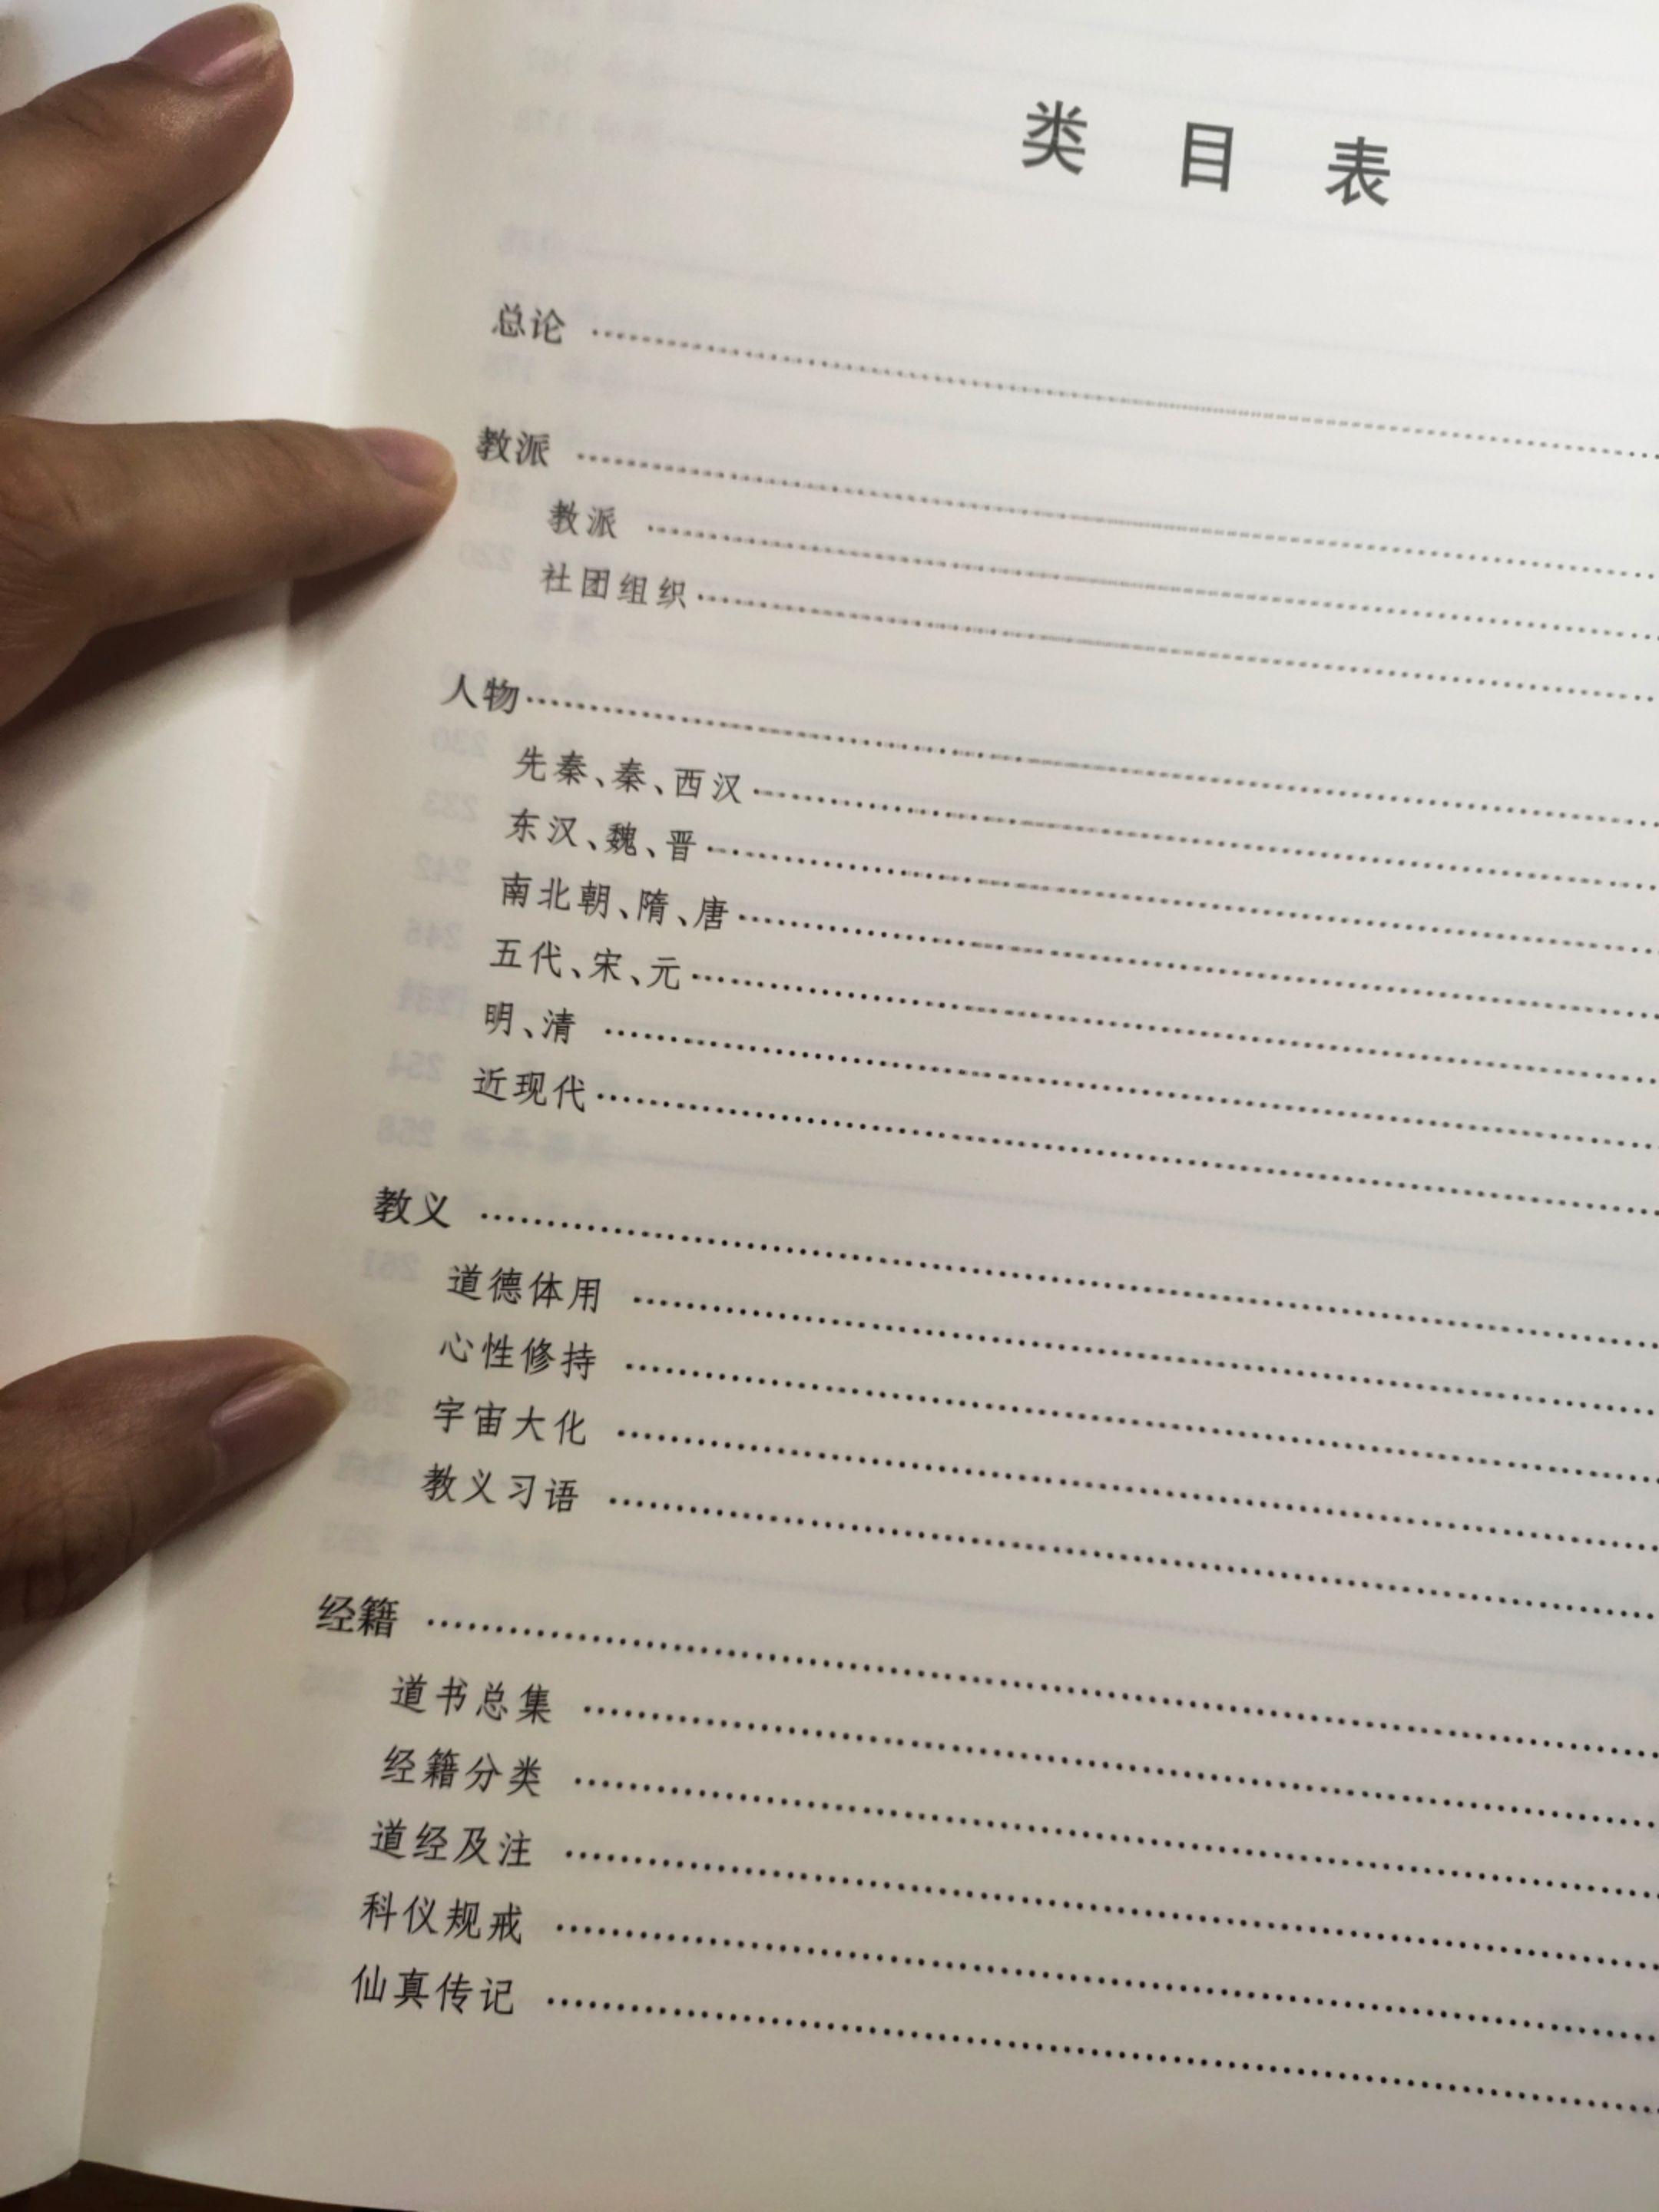 类目表
总论
教派
教派
社团组织
人物
先秦、秦、西汉
东汉、魏、晋
南北朝、隋、唐
五代、宋、元
明、清
近现代
教义
道德体用
心性修持
宇宙大化
教义习语
经籍
道书总集
经籍分类
道经及注
科仪规戒
仙真传记